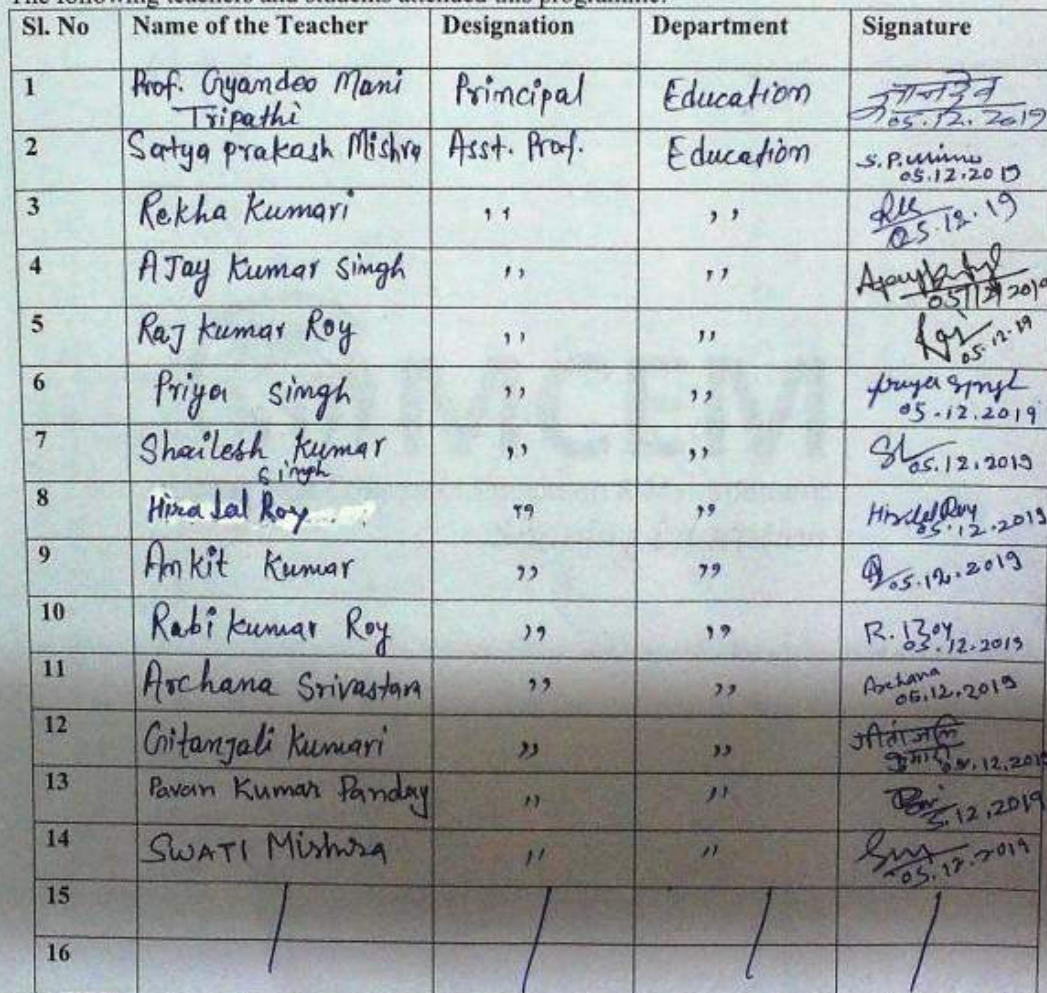 The following teachers and students attended this programme:
Sl. No Name of the Teacher Designation Department Signature
1 Prof. Gyandeo Mani Principal Education ज्ञानदेव
Tripathi 05.12.2019
2 Satya prakash Mishra Asst. Prof. Education S.P.
05.12.2019
3 Rekha Kumari ,, ,,
05.12.19
4 AJay Kumar Singh ,, ,,
05/12/2019
5 Raj kumar Roy ,, ,,
05.12.19
6 Priya Singh ,, ,, Priya Singh
05.12.2019
7 Shailesh Kumar ,, ,,
Singh 05.12.2019
8 Hira Lal Roy ,, ,, Hiralal Roy
05.12.2019
9 Ankit Kumar ,, ,,
05.12.2019
10 Rabi kumar Roy ,, ,, R. Roy
05.12.2019
11 Archana Srivastava ,, ,, Archana
05.12.2019
12 Gitanjali Kumari ,, ,, गीतांजलि
कुमारी 05.12.2019
13 Pavan Kumar Panday ,, ,,
5.12.2019
14 SWATI Mishra ,, ,,
05.12.2019
15
16